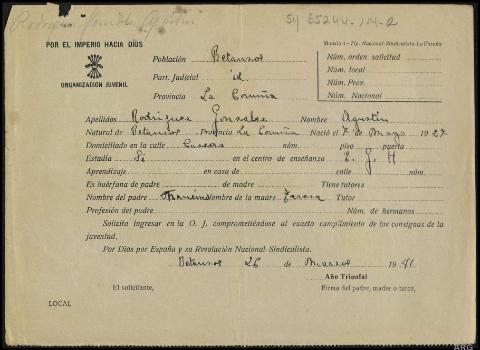 Rodriguez González Agustín
Sy 65244-114-2
POR EL IMPERIO HACIA DIOS
ORGANIZACIÓN JUVENIL
Modelo 1 - Tip. Nacional-Sindicalista-La Coruña
Población Betanzos
Part. Judicial id.
Provincia La Coruña
Núm. orden solicitud
Núm. local
Núm. Prov.
Núm. Nacional
Apellidos Rodriguez Gonzalez Nombre Agustin
Natural de Betanzos Provincia La Coruña Nació el 7 de Mayo 1927
Domiciliado en la calle núm. piso puerta
Estudia Si en el centro de enseñanza E. J. H
Aprendizaje en casa de calle núm.
Es huérfana de padre de madre Tiene tutores
Nombre del padre Nombre de la madre Tutor
Profesión del padre Núm. de hermanos
Solicita ingresar en la O. J. comprometiéndose al exacto cumplimiento de las consignas de la
juventud.
Por Dios por España y su Revolución Nacional-Sindicalista.
Betanzos 26 de Marzo 1941
Año Triunfal
El solicitante,
Firma del padre, madre o tutor,
LOCAL
ARG